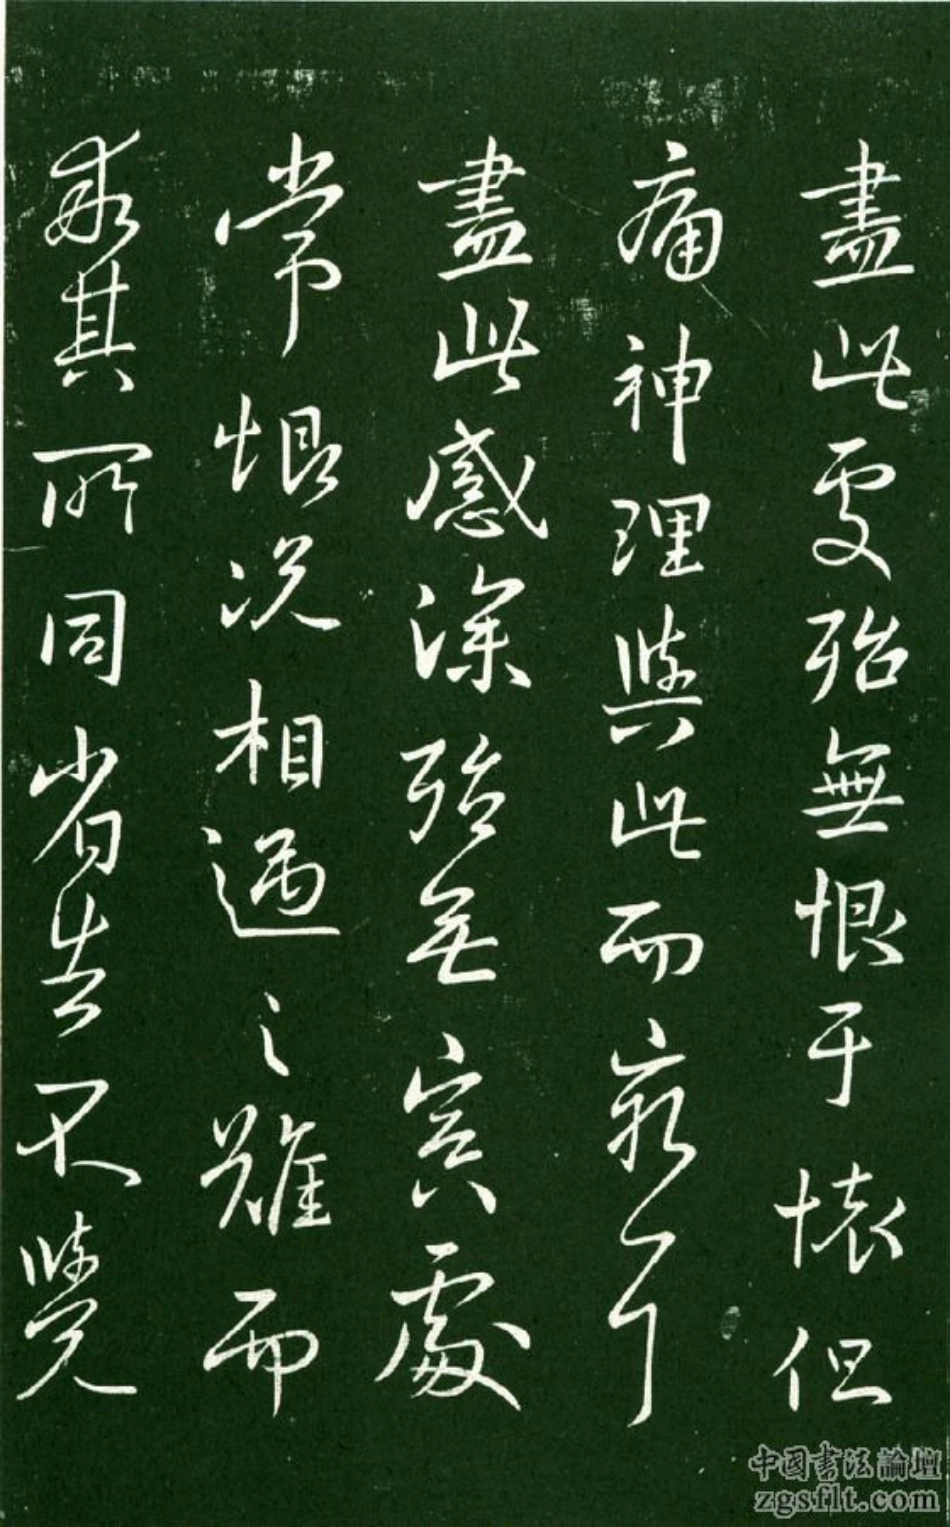 盡此處殆無恨于懷但
痛神理與此而耳
盡此感深殆無冥處
常恨況相遇之難而
喪其所同省告不覺
中國書法論壇
zgsflt.com